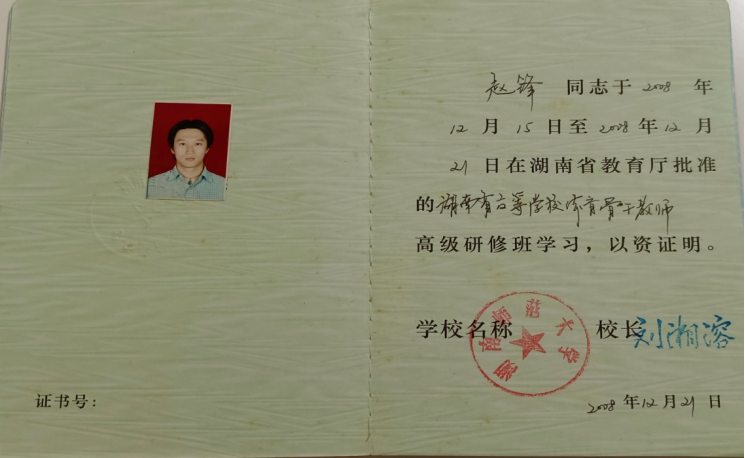 证书号：
赵锋 同志于 2008 年
12 月 15 日至 2008 年 12 月
21 日在湖南省教育厅批准
的湖南省高等学校体育骨干教师
高级研修班学习，以资证明。
学校名称 校长 刘湘溶
湖南师范大学
2008 年 12 月 21 日